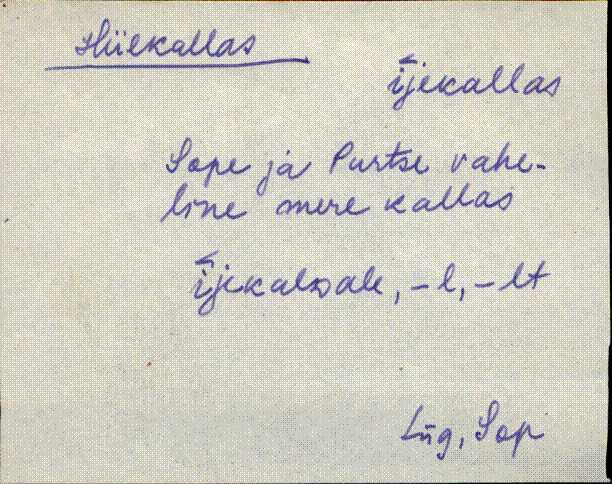 Hiiekallas
ījekallas
Sope ja Purtse vahe-
line mere kallas
ījekaldale, -l, -lt
Lüg, Sop